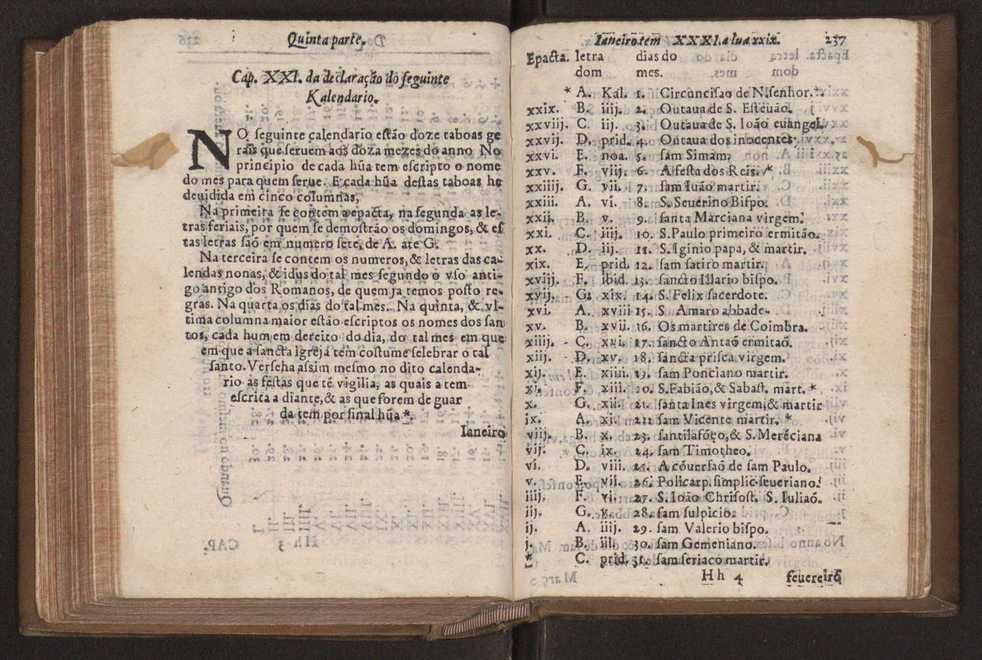 Quinta parte.
Cap. XXI. da declaração do seguinte
Kalendario.
NO seguinte calendario estão doze taboas ge
rais que seruem aos doza mezes do anno No
principio de cada hũa tem escripto o nome
do mes para quem serue. E cada hũa destas taboas he
deuidida em cinco columnas,
Na primeira se contem a epacta, na segunda as le-
tras feriais, por quem se demostrão os domingos, & es
tas letras saõ em numero sete, de A. ate G.
Na terceira se contem os numeros, & letras das ca-
lendas nonas, & idus do tal mes segundo o vso anti-
go antigo dos Romanos, de quem ja temos posto re-
gras. Na quarta os dias do tal mes. Na quinta, & vl-
tima columna maior estão escriptos os nomes dos san
tos, cada hum em dereito do dia, do tal mes em que
em que a sancta igreja tem costume selebrar o tal
santo. Verseha assim mesmo no dito calenda-
rio as festas que tẽ vigilia, as quais a tem
escrita a diante, & as que forem de guar
da tem por sinal hũa *.
Ianeiro
Ianeiro tem XXXI. a lua xxix. 237
Epacta. letra dias do
dom mes.
* A. Kal. 1. Circuncisao de N. senhor. *
xxix. B. iiij. 2. Outaua de S. Esteuão.
xxviij. C. iij. 3. Outaua de S. Ioão euangel.
xxvij. D. prid. 4. Outaua dos inocentes
xxvi. E. noa. 5. sam Simam.
xxv. F. viij. 6. A festa dos Reis. *
xxiiij. G. vij. 7. sam Iuão martir.
xxiii. A. vi. 8. S. Seuerino Bispo.
xxij. B. v. 9. santa Marciana virgem.
xxi. C. iiij. 10. S. Paulo primeiro ermitão.
xx. D. iij. 11. S. Iginio papa, & martir.
xix. E. prid. 12. sam satiro martir.
xviij. F. ibid. 13. sancto Illario bispo.
xvij. G. xix. 14. S. Felix sacerdote.
xvi. A. xviii 15. S. Amaro abbade.
xv. B. xvii. 16. Os martires de Coimbra.
xiiij. C. xvi. 17. sancto Antaõ ermitaõ.
xiij. D. xv. 18. sancta prisca virgem.
xij. E. xiiii. 19. sam Ponciano martir.
xi. F. xiii. 20. S. Fabião, & Sabast. mart. *
x. G. xii. 21. santa Ines virgem, & martir
ix. A. xi. 22. sam Vicente martir. *
viij. B. x. 23. santilafõço, & S. Merẽciana
vij. C. ix. 24. sam Timotheo.
vi. D. viii. 25. A cõuersaõ de sam Paulo.
v. E. vii. 26. Policarp. simplic. seueriano.
iiij. F. vi. 27. S. Ioão Chrisost. S. Iuliaõ.
iij. G. v. 28. sam sulpicio.
ij. A. iiij. 29. sam Valerio bispo.
j. B. iii. 30. sam Gemeniano.
* C. prid. 31. sam seriaco martir.
Hh 4 feuereiro